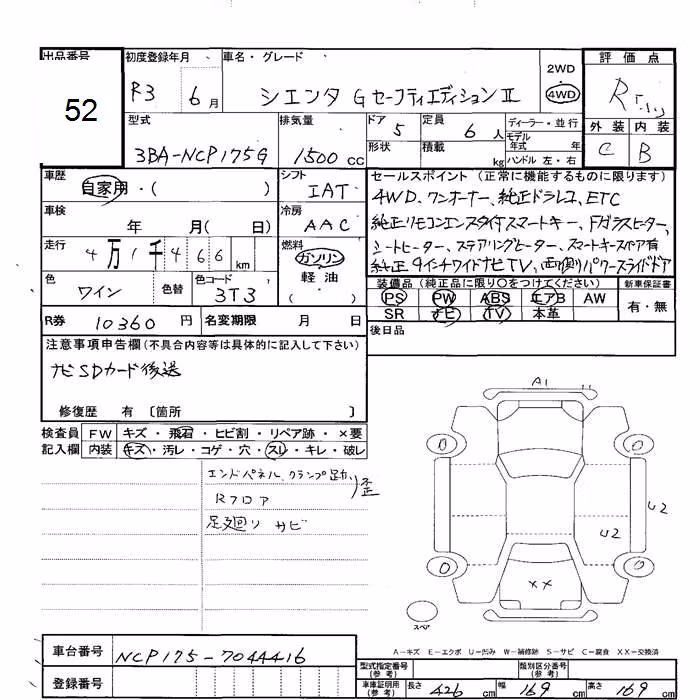 出品番号
52
初度登録年月
R3 6月
車名・グレード
シエンタ G セーフティエディションⅡ
2WD
4WD
評価点
R
外装 内装
C B
型式
3BA-NCP175G
排気量
1500 cc
ドア 5
形状
定員 6 人
積載 kg
ディーラー・並行
モデル
年式 年
ハンドル 左・右
車歴
自家用・( )
シフト
IAT
車検
年 月( 日)
冷房
AAC
走行
4万1千466 km
燃料
ガソリン
軽油
( )
色
ワイン
色替
色コード
3T3
セールスポイント (正常に機能するものに限ります)
4WD、ワンオーナー、純正ドラレコ、ETC
純正リモコンエンスタ付スマートキー、Fガラスヒーター、
シートヒーター、ステアリングヒーター、スマートキースペア有
純正9インチワイドナビTV、両側パワースライドドア
装備品 (純正品に限り○をつけてください)
新車保証書
PS PW ABS エアB AW
SR ナビ TV 本革
有・無
後日品
R券 10360 円
名変期限 月 日
注意事項申告欄(不具合内容等は具体的に記入して下さい)
ナビSDカード後送
修復歴 有 〔箇所 〕
検査員
記入欄
FW キズ・飛石・ヒビ割・リペア跡・×要
内装 キズ・汚レ・コゲ・穴・スレ・キレ・破レ
エンドパネル、クランプ足かい 歪
Rフロア
足廻り サビ
A1
U2
U2
××
スペア
A―キズ E―エクボ U―凹み W―補修跡 S―サビ C―腐食 XX―交換済
車台番号
NCP175-7044416
登録番号
型式指定番号
(参考)
類別区分番号
(参考)
車庫証明用
(参考)
長さ 426 cm 幅 169 cm 高さ 169 cm